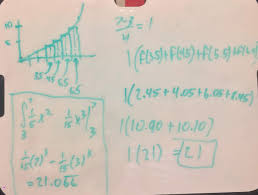 10
5
3.5 4.5 5.5 6.5
7-3/4 = 1
1(f(3.5)+f(4.5)+f(5.5)+f(6.5)
1(2.45+4.05+6.05+8.45)
1(10.90+10.10)
1(21) = 21
∫₃⁷ 1/5 x² 1/15 x³]₃⁷
1/15(7)³ - 1/15(3)³
= 21.066